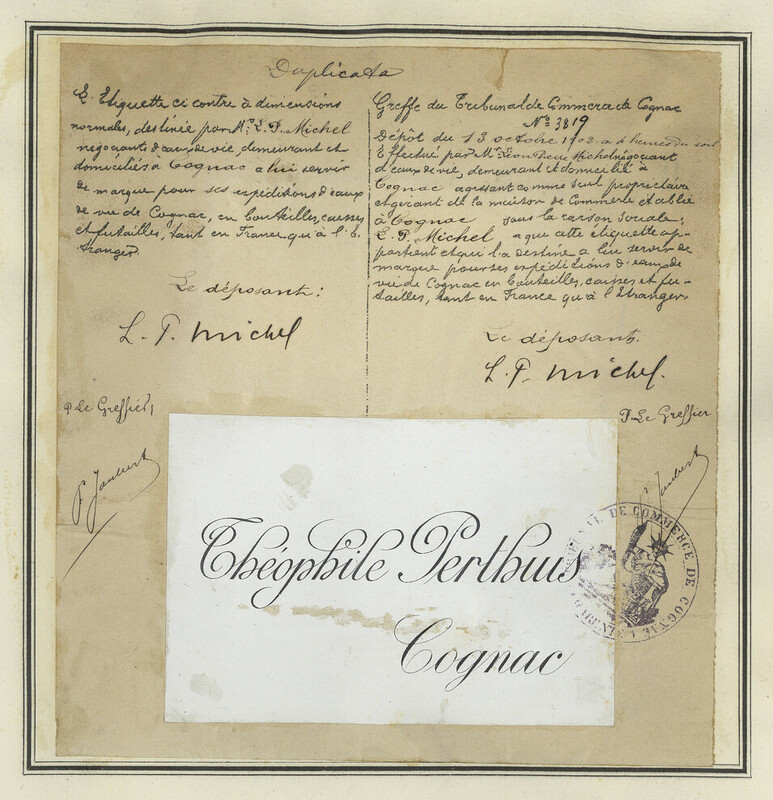 Duplicata
L'Etiquette ci contre à dimensions
normales, destinée par Mr. L. P. Michel
négociant d'eaux de vie, demeurant et
domiciliés à Cognac a lui servir
de marque pour ses expéditions d'eaux
de vie de Cognac, en bouteilles, caisses
et futailles, tant en France qu'à l'E-
tranger
Le déposant:
L. P. Michel
P. Le Greffier,
Greffe du Tribunal de Commerce de Cognac
No 3819
Dépôt du 13 octobre 1903 a 4 heures du soir
Effectué par Mr. Léon Pierre Michel négociant
d'eaux de vie, demeurant et domicilié à
Cognac agissant comme seul propriétaire
et gérant de la maison de Commerce établie
à Cognac sous la raison sociale:
L. P. Michel a que cette étiquette ap-
partient et qui l'a destine a lui servir de
marque pour ses expéditions d'eaux de
vie de Cognac en bouteilles, caisses et fu-
tailles, tant en France qu'à l'Etranger
Le déposant.
L. P. Michel.
P. Le Greffier
Théophile Perthuis
Cognac
TRIBUNAL DE COMMERCE DE COGNAC